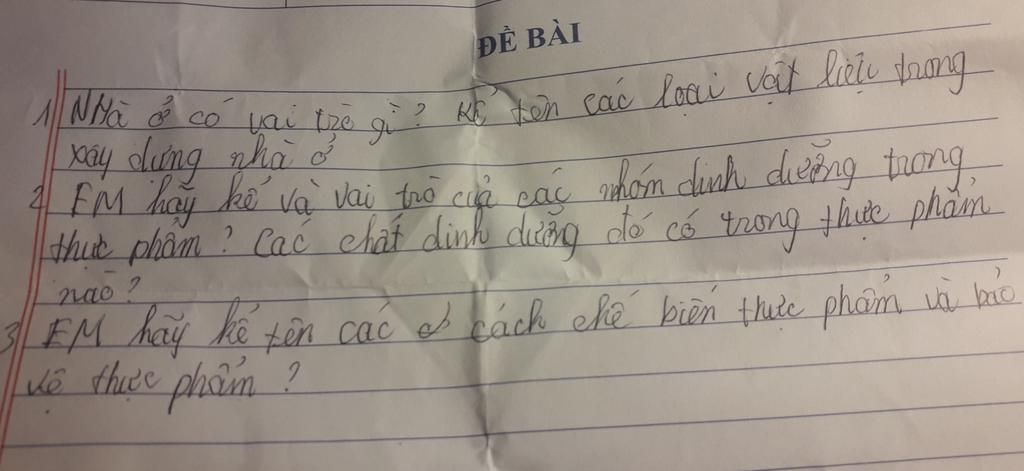 ĐỀ BÀI
1 NHà ở có vai trò gì? Kể tên các loại vật liệu trong
xây dựng nhà ở
2 EM hãy kể và vai trò của các nhóm dinh dưỡng trong
thực phẩm? Các chất dinh dưỡng đó có trong thực phẩm
nào?
3 EM hãy kể tên các cách chế biến thực phẩm và bảo
vệ thực phẩm?